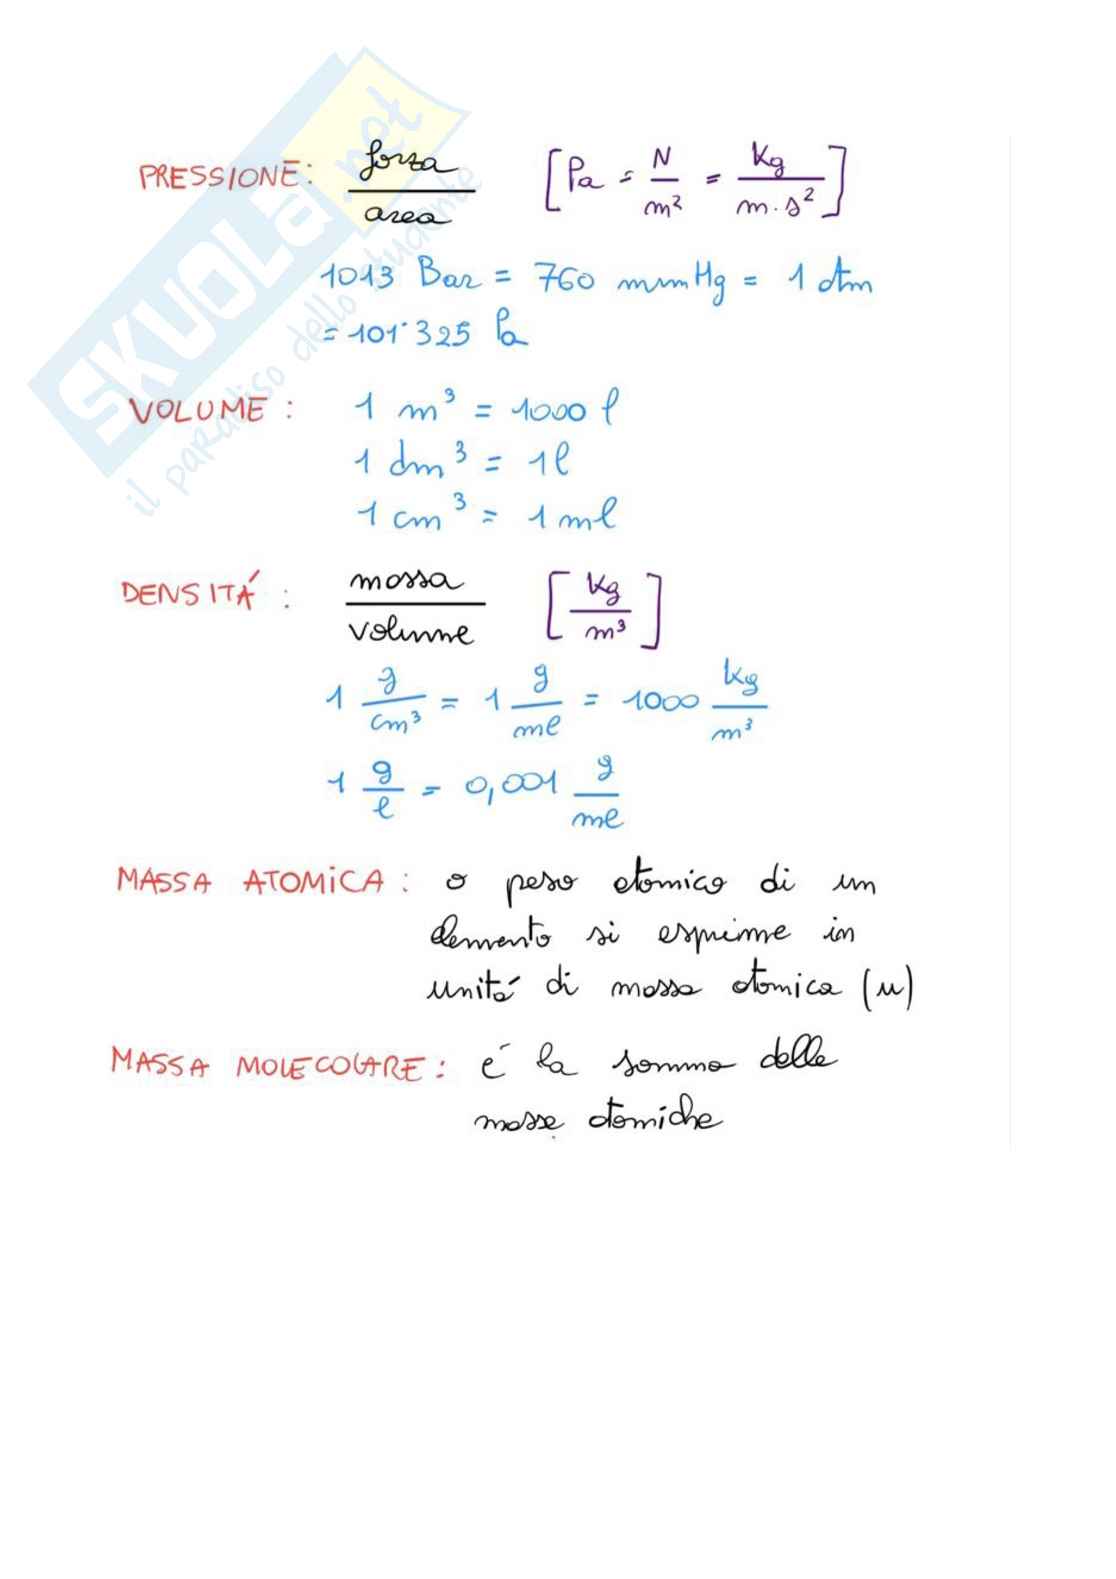 SKUOLA.net
il paradiso dello studente
PRESSIONE: forza/area [Pa = N/m² = Kg/m·s²]
1013 Bar = 760 mmHg = 1 Atm
= 101˙325 Pa
VOLUME: 1 m³ = 1000 l
1 dm³ = 1l
1 cm³ = 1 ml
DENSITÁ: massa/volume [Kg/m³]
1 g/cm³ = 1 g/ml = 1000 kg/m³
1 g/l = 0,001 g/ml
MASSA ATOMICA: o peso atomico di un
elemento si esprime in
unitá di massa atomica (u)
MASSA MOLECOLARE: é la somma delle
masse atomiche